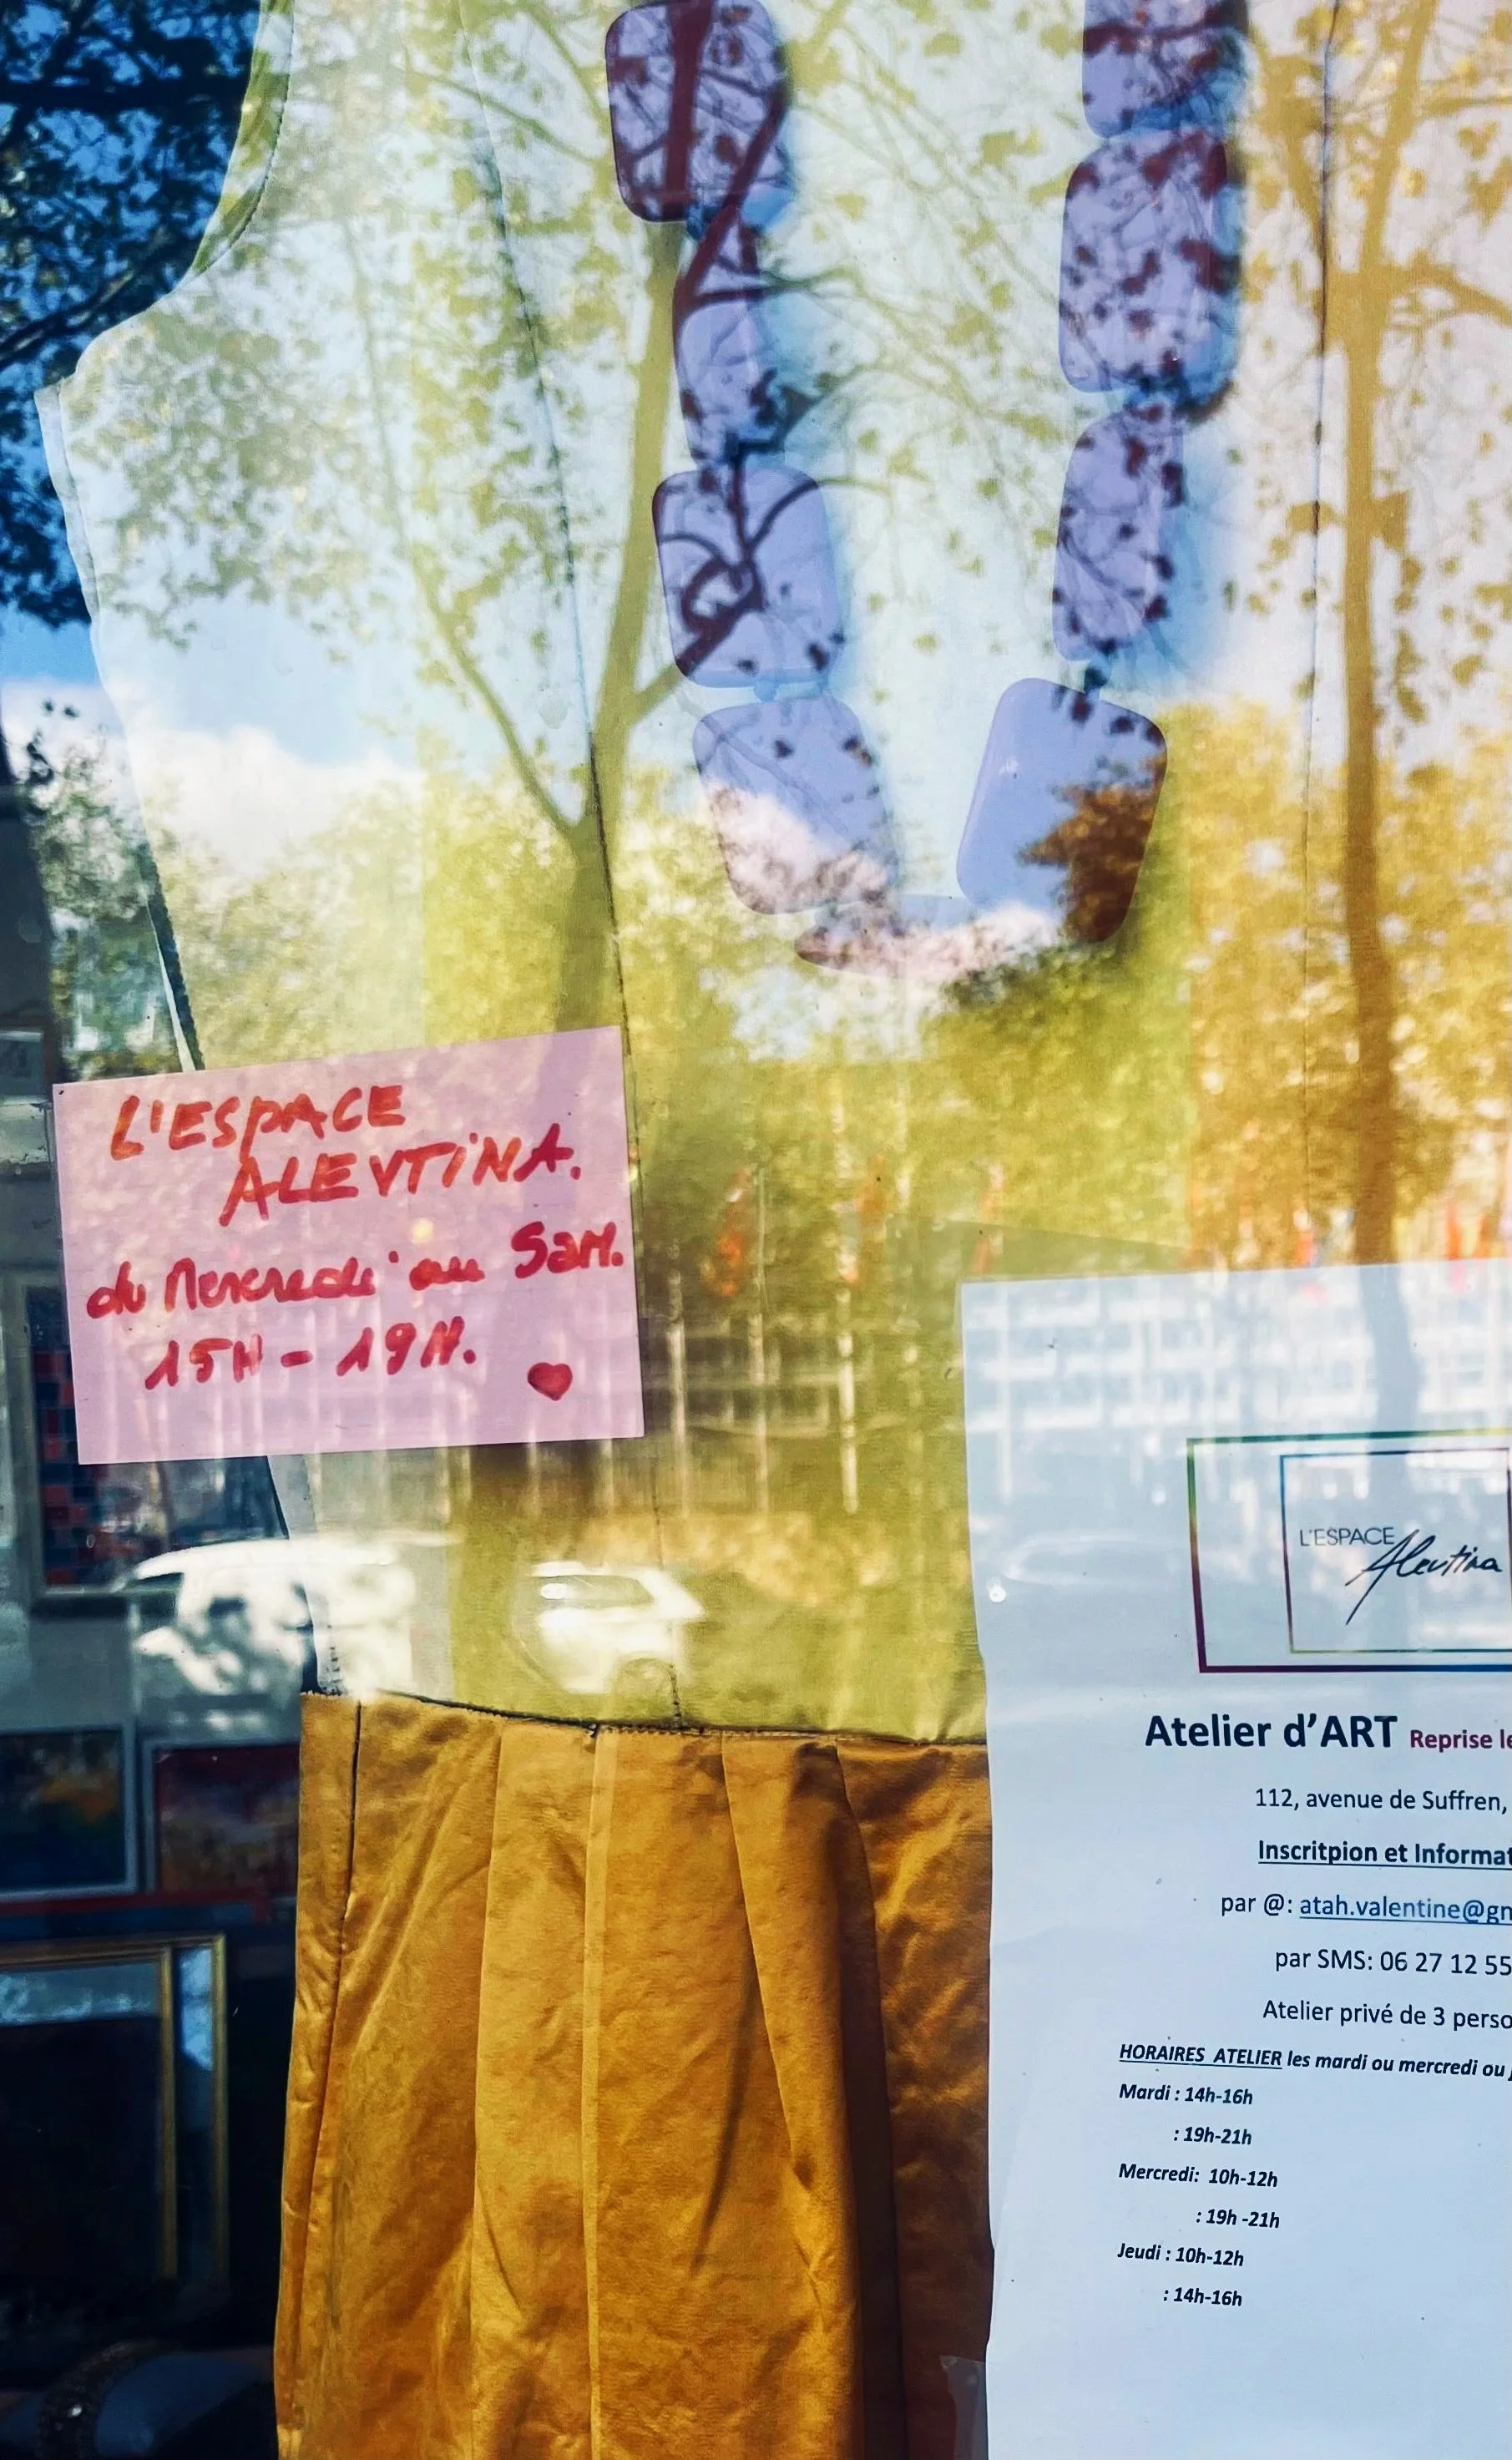 L'ESPACE
ALEVTINA.
du Mercredi au Sam.
15H - 19H.
L'ESPACE
Alevtina
Atelier d'ART Reprise le
112, avenue de Suffren,
Inscritpion et Informat
par @: atah.valentine@gm
par SMS: 06 27 12 55
Atelier privé de 3 perso
HORAIRES ATELIER les mardi ou mercredi ou j
Mardi : 14h-16h
: 19h-21h
Mercredi: 10h-12h
: 19h -21h
Jeudi : 10h-12h
: 14h-16h